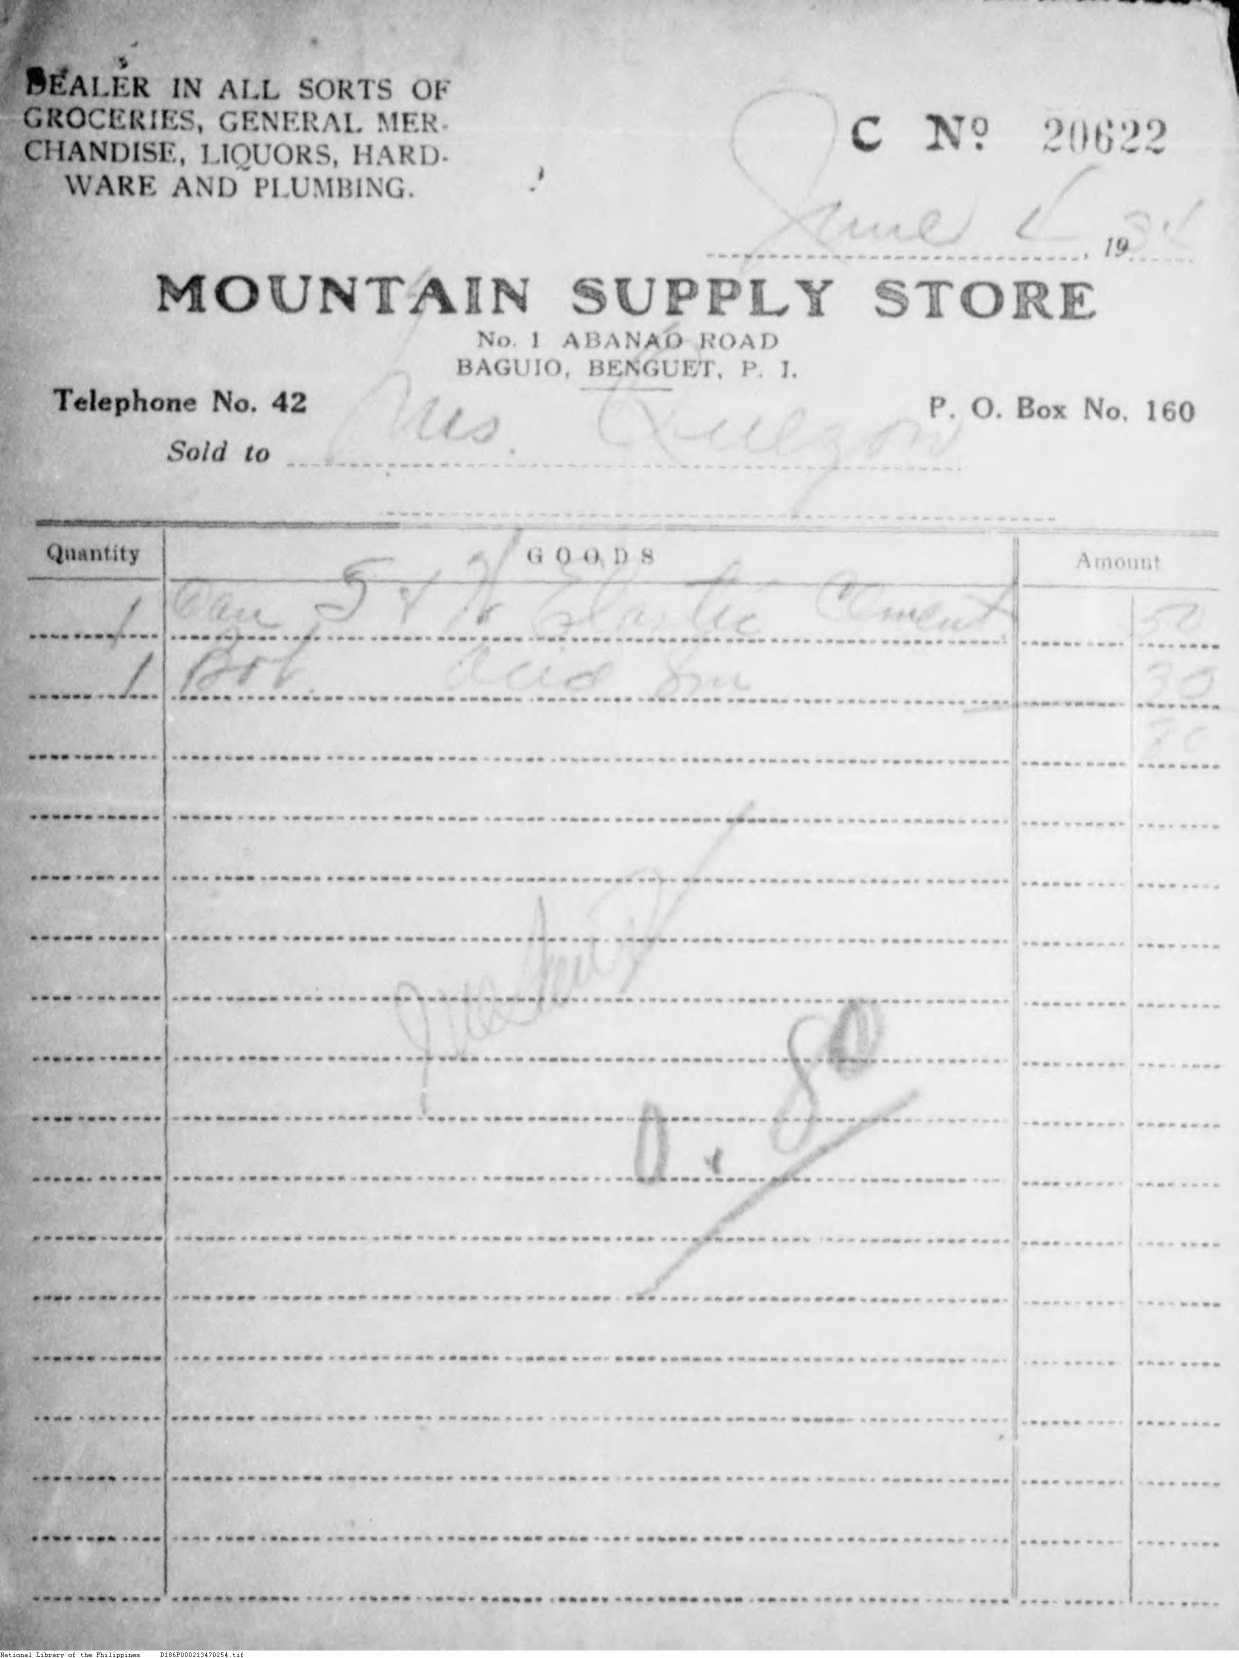 DEALER IN ALL SORTS OF
GROCERIES, GENERAL MER-
CHANDISE, LIQUORS, HARD-
WARE AND PLUMBING.
C Nº 20622
June 4, 1934
MOUNTAIN SUPPLY STORE
No. 1 ABANAO ROAD
BAGUIO, BENGUET, P. I.
Telephone No. 42
P. O. Box No. 160
Sold to Mrs. Quezon
Quantity GOODS Amount
1 Can S & H Elastic Cement 50
1 Bot. Acid 30
80
0.80
National Library of the Philippines D186P000213470254.tif